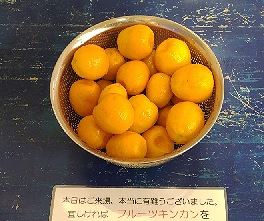 本日はご来場、本当に有難うございました。
宜しければ フルーツキンカン を